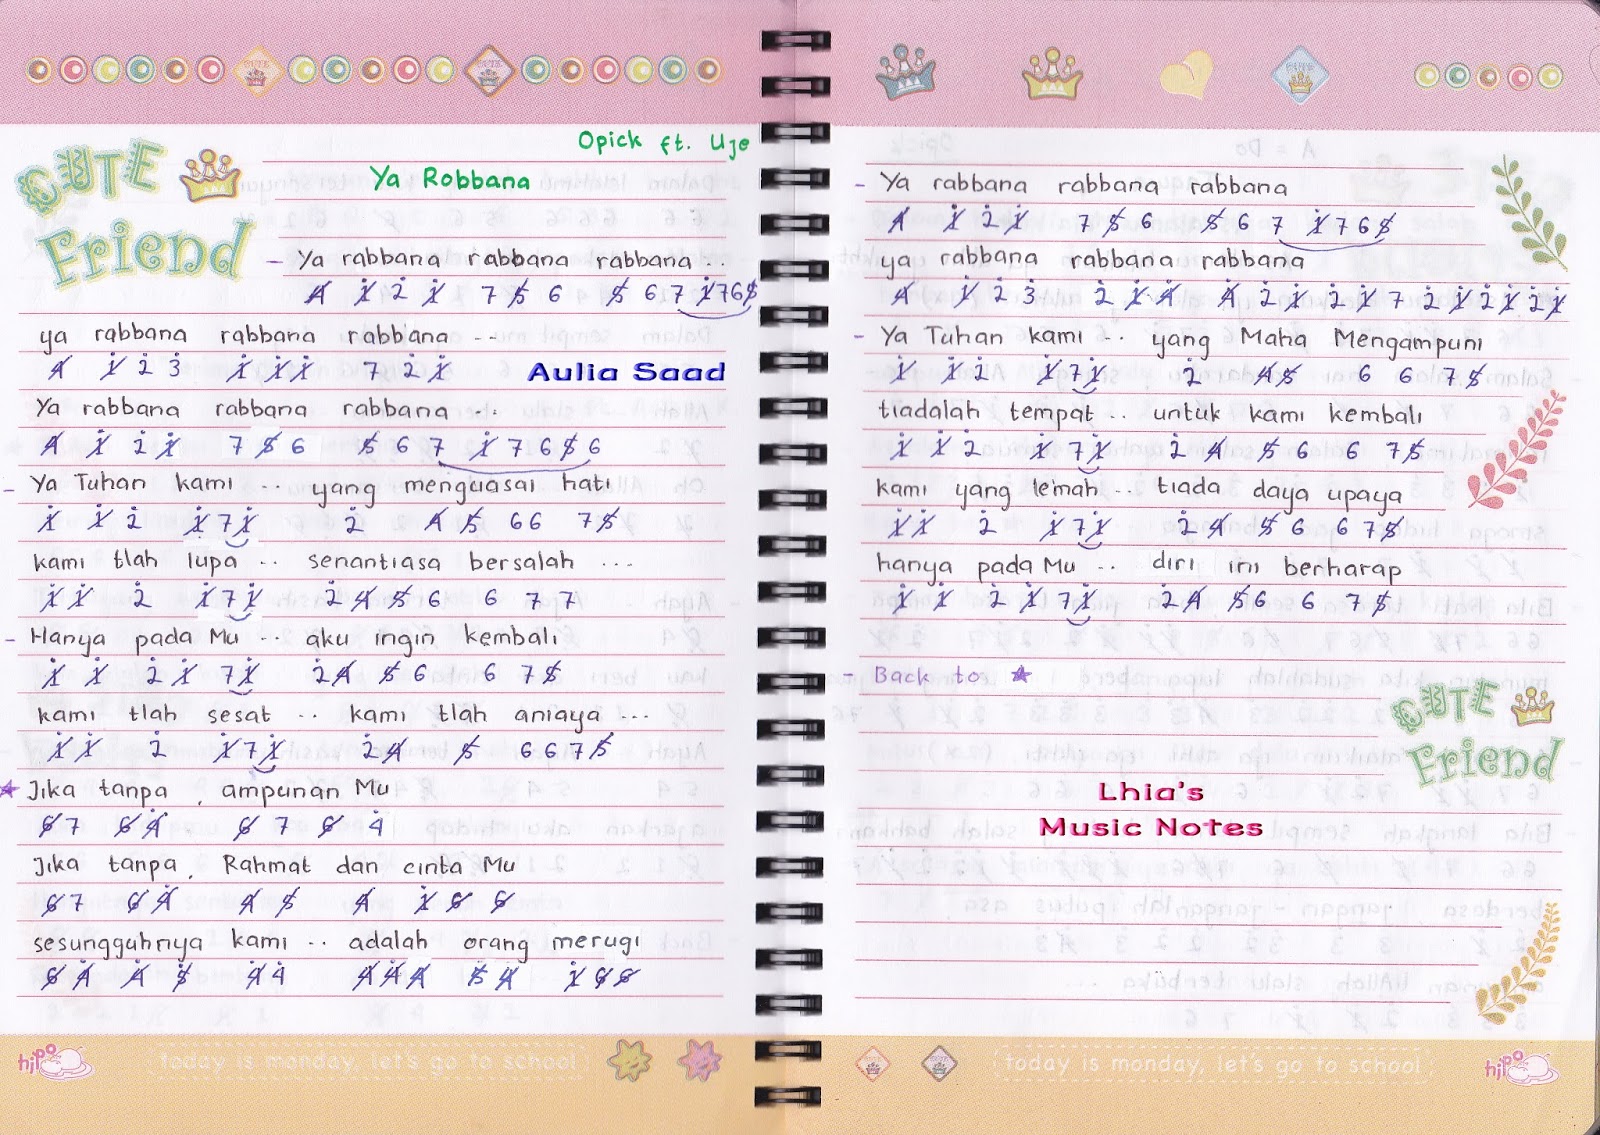 CUTE Friend
Opick ft. Uje
Ya Robbana
- Ya rabbana rabbana rabbana ...
4 1 2 1 7 5 6 5 6 7 1 7 6 5
ya rabbana rabbana rabbana ...
4 1 2 3 1 1 1 7 2 1
Aulia Saad
Ya rabbana rabbana rabbana ...
4 1 2 1 7 5 6 5 6 7 1 7 6 5 6
- Ya Tuhan kami .. yang menguasai hati
1 1 2 1 7 1 2 4 5 6 6 7 5
kami tlah lupa .. senantiasa bersalah ...
1 1 2 1 7 1 2 4 5 6 6 7 7
- Hanya pada Mu .. aku ingin kembali
1 1 2 1 7 1 2 4 5 6 6 7 5
kami tlah sesat .. kami tlah aniaya ...
1 1 2 1 7 1 2 4 5 6 6 7 5
★ Jika tanpa , ampunan Mu
6 7 6 4 6 7 6 4
Jika tanpa, Rahmat dan cinta Mu
6 7 6 4 4 5 4 1 6 6
sesungguhnya kami .. adalah orang merugi
6 4 4 5 4 4 4 4 4 5 4 1 6 6
hipo
today is monday, let's go to school
- Ya rabbana rabbana rabbana
4 1 2 1 7 5 6 5 6 7 1 7 6 5
ya rabbana rabbana rabbana
4 1 2 3 2 1 4 4 2 1 2 1 7 2 1 2 1 2 1
- Ya Tuhan kami .. yang Maha Mengampuni
1 1 2 1 7 1 2 4 5 6 6 7 5
tiadalah tempat .. untuk kami kembali
1 1 2 1 7 1 2 4 5 6 6 7 5
kami yang lemah .. tiada daya upaya
1 1 2 1 7 1 2 4 5 6 6 7 5
hanya pada Mu .. diri ini berharap
1 1 2 1 7 1 2 4 5 6 6 7 5
- Back to ★
CUTE Friend
Lhia's
Music Notes
today is monday, let's go to school
hipo